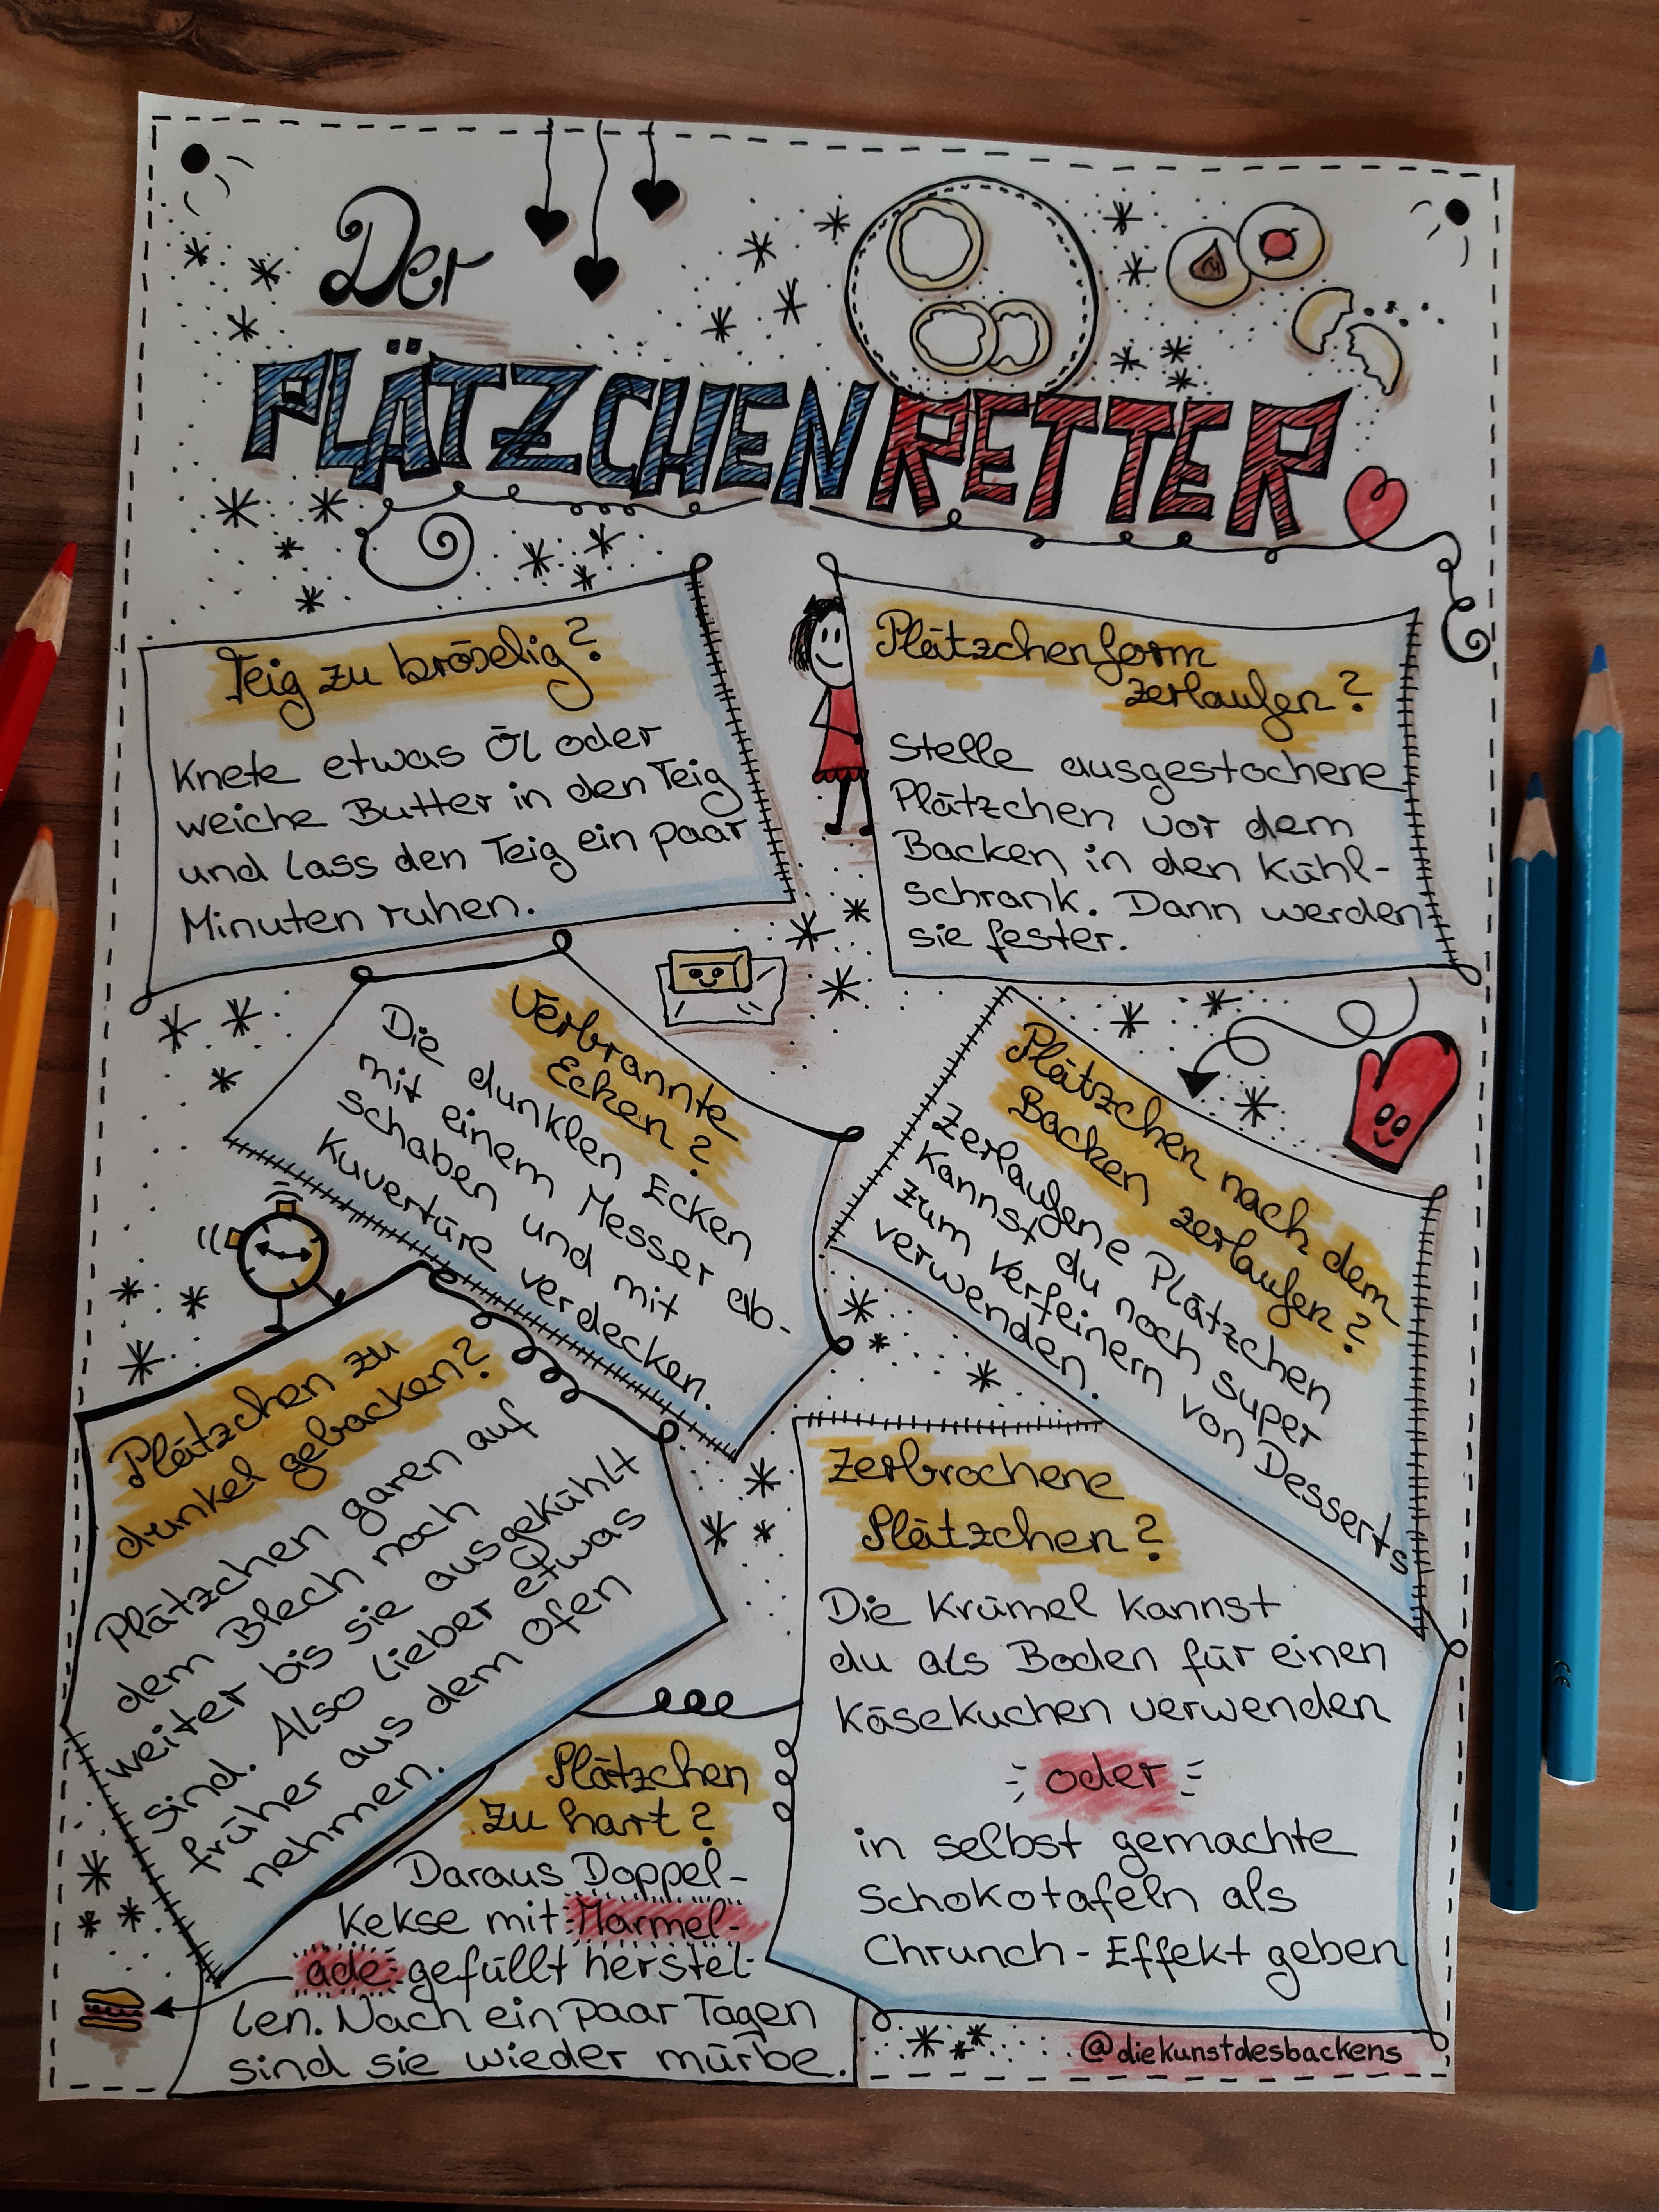 Der
PLÄTZCHENRETTER
Teig zu bröselig?
Knete etwas Öl oder
weiche Butter in den Teig
und lass den Teig ein paar
Minuten ruhen.
Plätzchenform
zerlaufen?
Stelle ausgestochene
Plätzchen vor dem
Backen in den Kühl-
schrank. Dann werden
sie fester.
Verbrannte
Ecken?
Die dunklen Ecken
mit einem Messer ab-
schaben und mit
Kuvertüre verdecken.
Plätzchen nach dem
Backen zerlaufen?
Zerlaufene Plätzchen
kannst du noch super
zum verfeinern von Desserts
verwenden.
Plätzchen zu
dunkel gebacken?
Plätzchen garen auf
dem Blech noch
weiter bis sie ausgekühlt
sind. Also lieber etwas
früher aus dem Ofen
nehmen.
Zerbrochene
Plätzchen?
Die Krümel kannst
du als Boden für einen
Käsekuchen verwenden
oder
in selbst gemachte
Schokotafeln als
Chrunch-Effekt geben
Plätzchen
zu hart?
Daraus Doppel-
kekse mit Marmel-
ade gefüllt herstel-
len. Nach ein paar Tagen
sind sie wieder mürbe.
@diekunstdesbackens